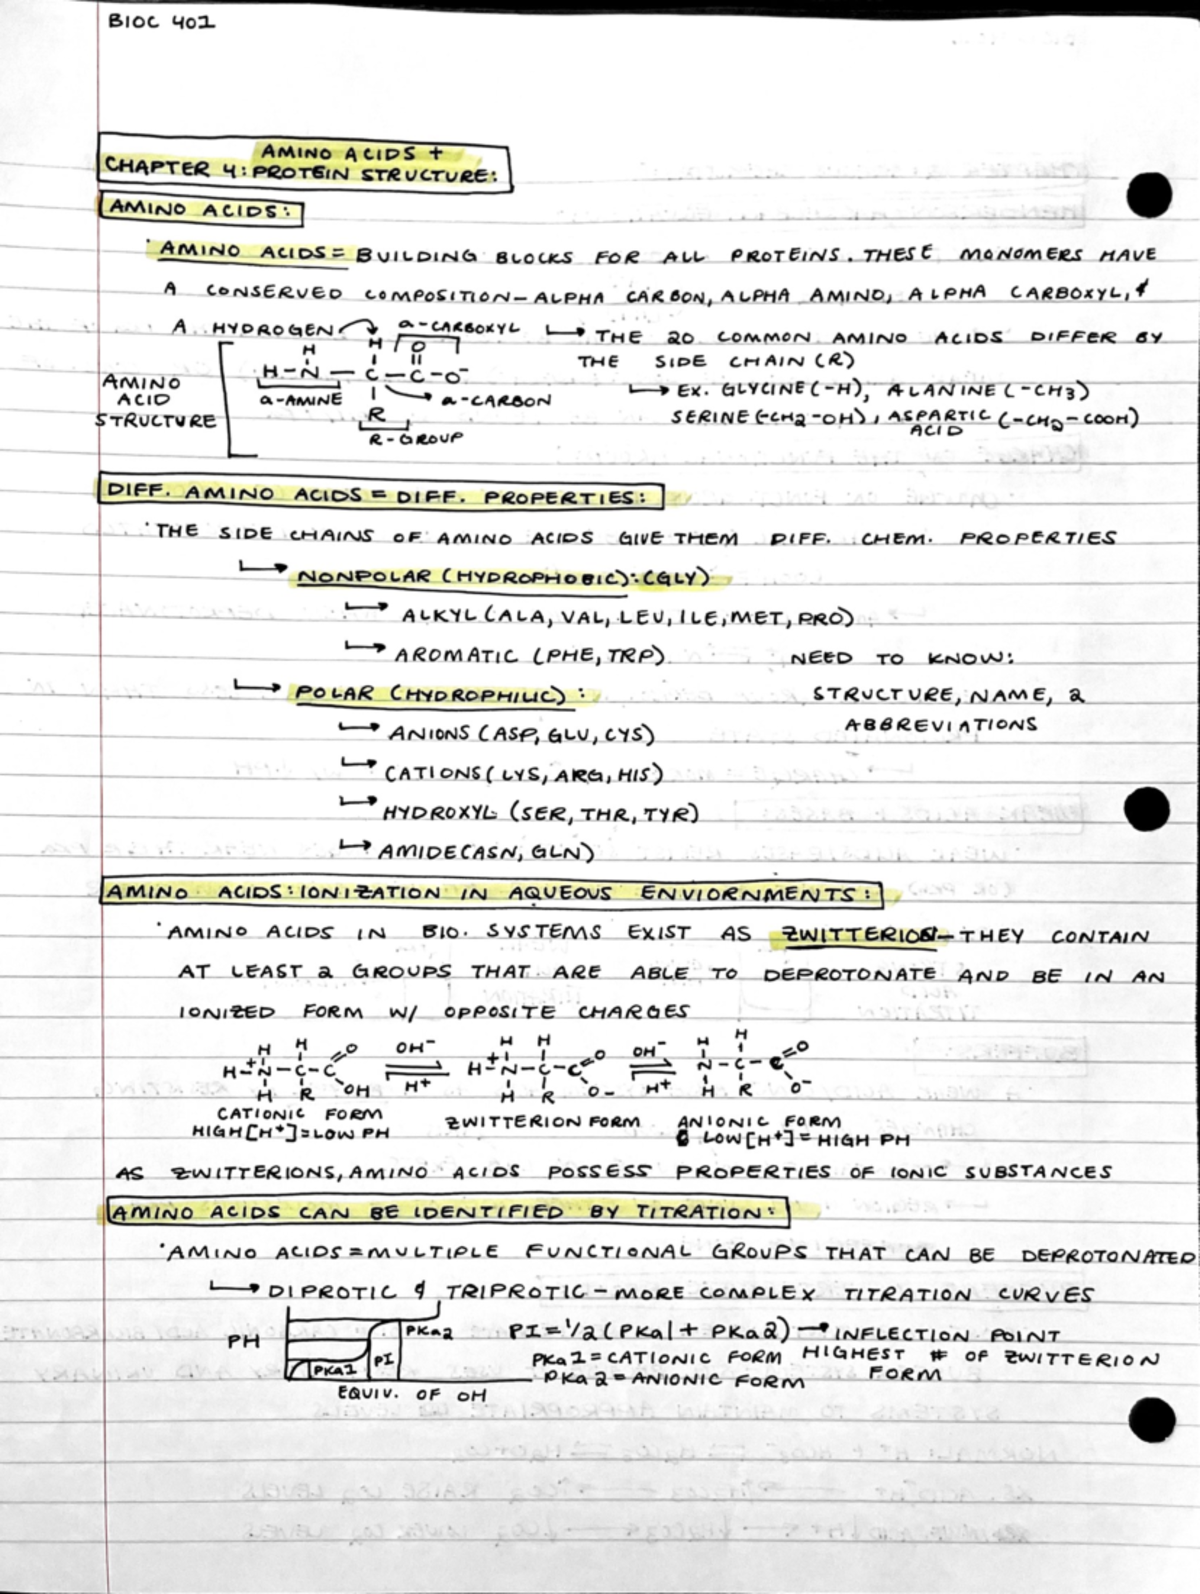 BIOC 401
AMINO ACIDS +
CHAPTER 4: PROTEIN STRUCTURE:
AMINO ACIDS:
· AMINO ACIDS = BUILDING BLOCKS FOR ALL PROTEINS. THESE MONOMERS HAVE
A CONSERVED COMPOSITION - ALPHA CARBON, ALPHA AMINO, ALPHA CARBOXYL, &
A HYDROGEN
α-CARBOXYL
↳ THE 20 COMMON AMINO ACIDS DIFFER BY
THE SIDE CHAIN (R)
↳ EX. GLYCINE (-H), ALANINE (-CH3)
SERINE (-CH2-OH), ASPARTIC ACID (-CH2-COOH)
AMINO
ACID
STRUCTURE
H H O
H-N-C-C-O-
R
α-AMINE
α-CARBON
R-GROUP
DIFF. AMINO ACIDS = DIFF. PROPERTIES:
· THE SIDE CHAINS OF AMINO ACIDS GIVE THEM DIFF. CHEM. PROPERTIES
↳ NONPOLAR (HYDROPHOBIC): (GLY)
↳ ALKYL (ALA, VAL, LEU, ILE, MET, PRO)
↳ AROMATIC (PHE, TRP)
NEED TO KNOW:
STRUCTURE, NAME, 2
ABBREVIATIONS
↳ POLAR (HYDROPHILIC):
↳ ANIONS (ASP, GLU, CYS)
↳ CATIONS (LYS, ARG, HIS)
↳ HYDROXYL (SER, THR, TYR)
↳ AMIDE (ASN, GLN)
AMINO ACIDS: IONIZATION IN AQUEOUS ENVIORNMENTS:
· AMINO ACIDS IN BIO. SYSTEMS EXIST AS ZWITTERION - THEY CONTAIN
AT LEAST 2 GROUPS THAT ARE ABLE TO DEPROTONATE AND BE IN AN
IONIZED FORM W/ OPPOSITE CHARGES
H H O OH- H H O OH- H H O
H-+N-C-C ⇌ H-+N-C-C ⇌ N-C-C
H R OH H+ H R O- H+ H R O-
CATIONIC FORM
HIGH [H+] = LOW PH
ZWITTERION FORM
ANIONIC FORM
LOW [H+] = HIGH PH
AS ZWITTERIONS, AMINO ACIDS POSSESS PROPERTIES OF IONIC SUBSTANCES
AMINO ACIDS CAN BE IDENTIFIED BY TITRATION:
· AMINO ACIDS = MULTIPLE FUNCTIONAL GROUPS THAT CAN BE DEPROTONATED
↳ DIPROTIC & TRIPROTIC - MORE COMPLEX TITRATION CURVES
PH
PKa1
PI
PKa2
EQUIV. OF OH
PI = 1/2 (PKa1 + PKa2) → INFLECTION POINT
HIGHEST # OF ZWITTERION
FORM
PKa1 = CATIONIC FORM
PKa2 = ANIONIC FORM